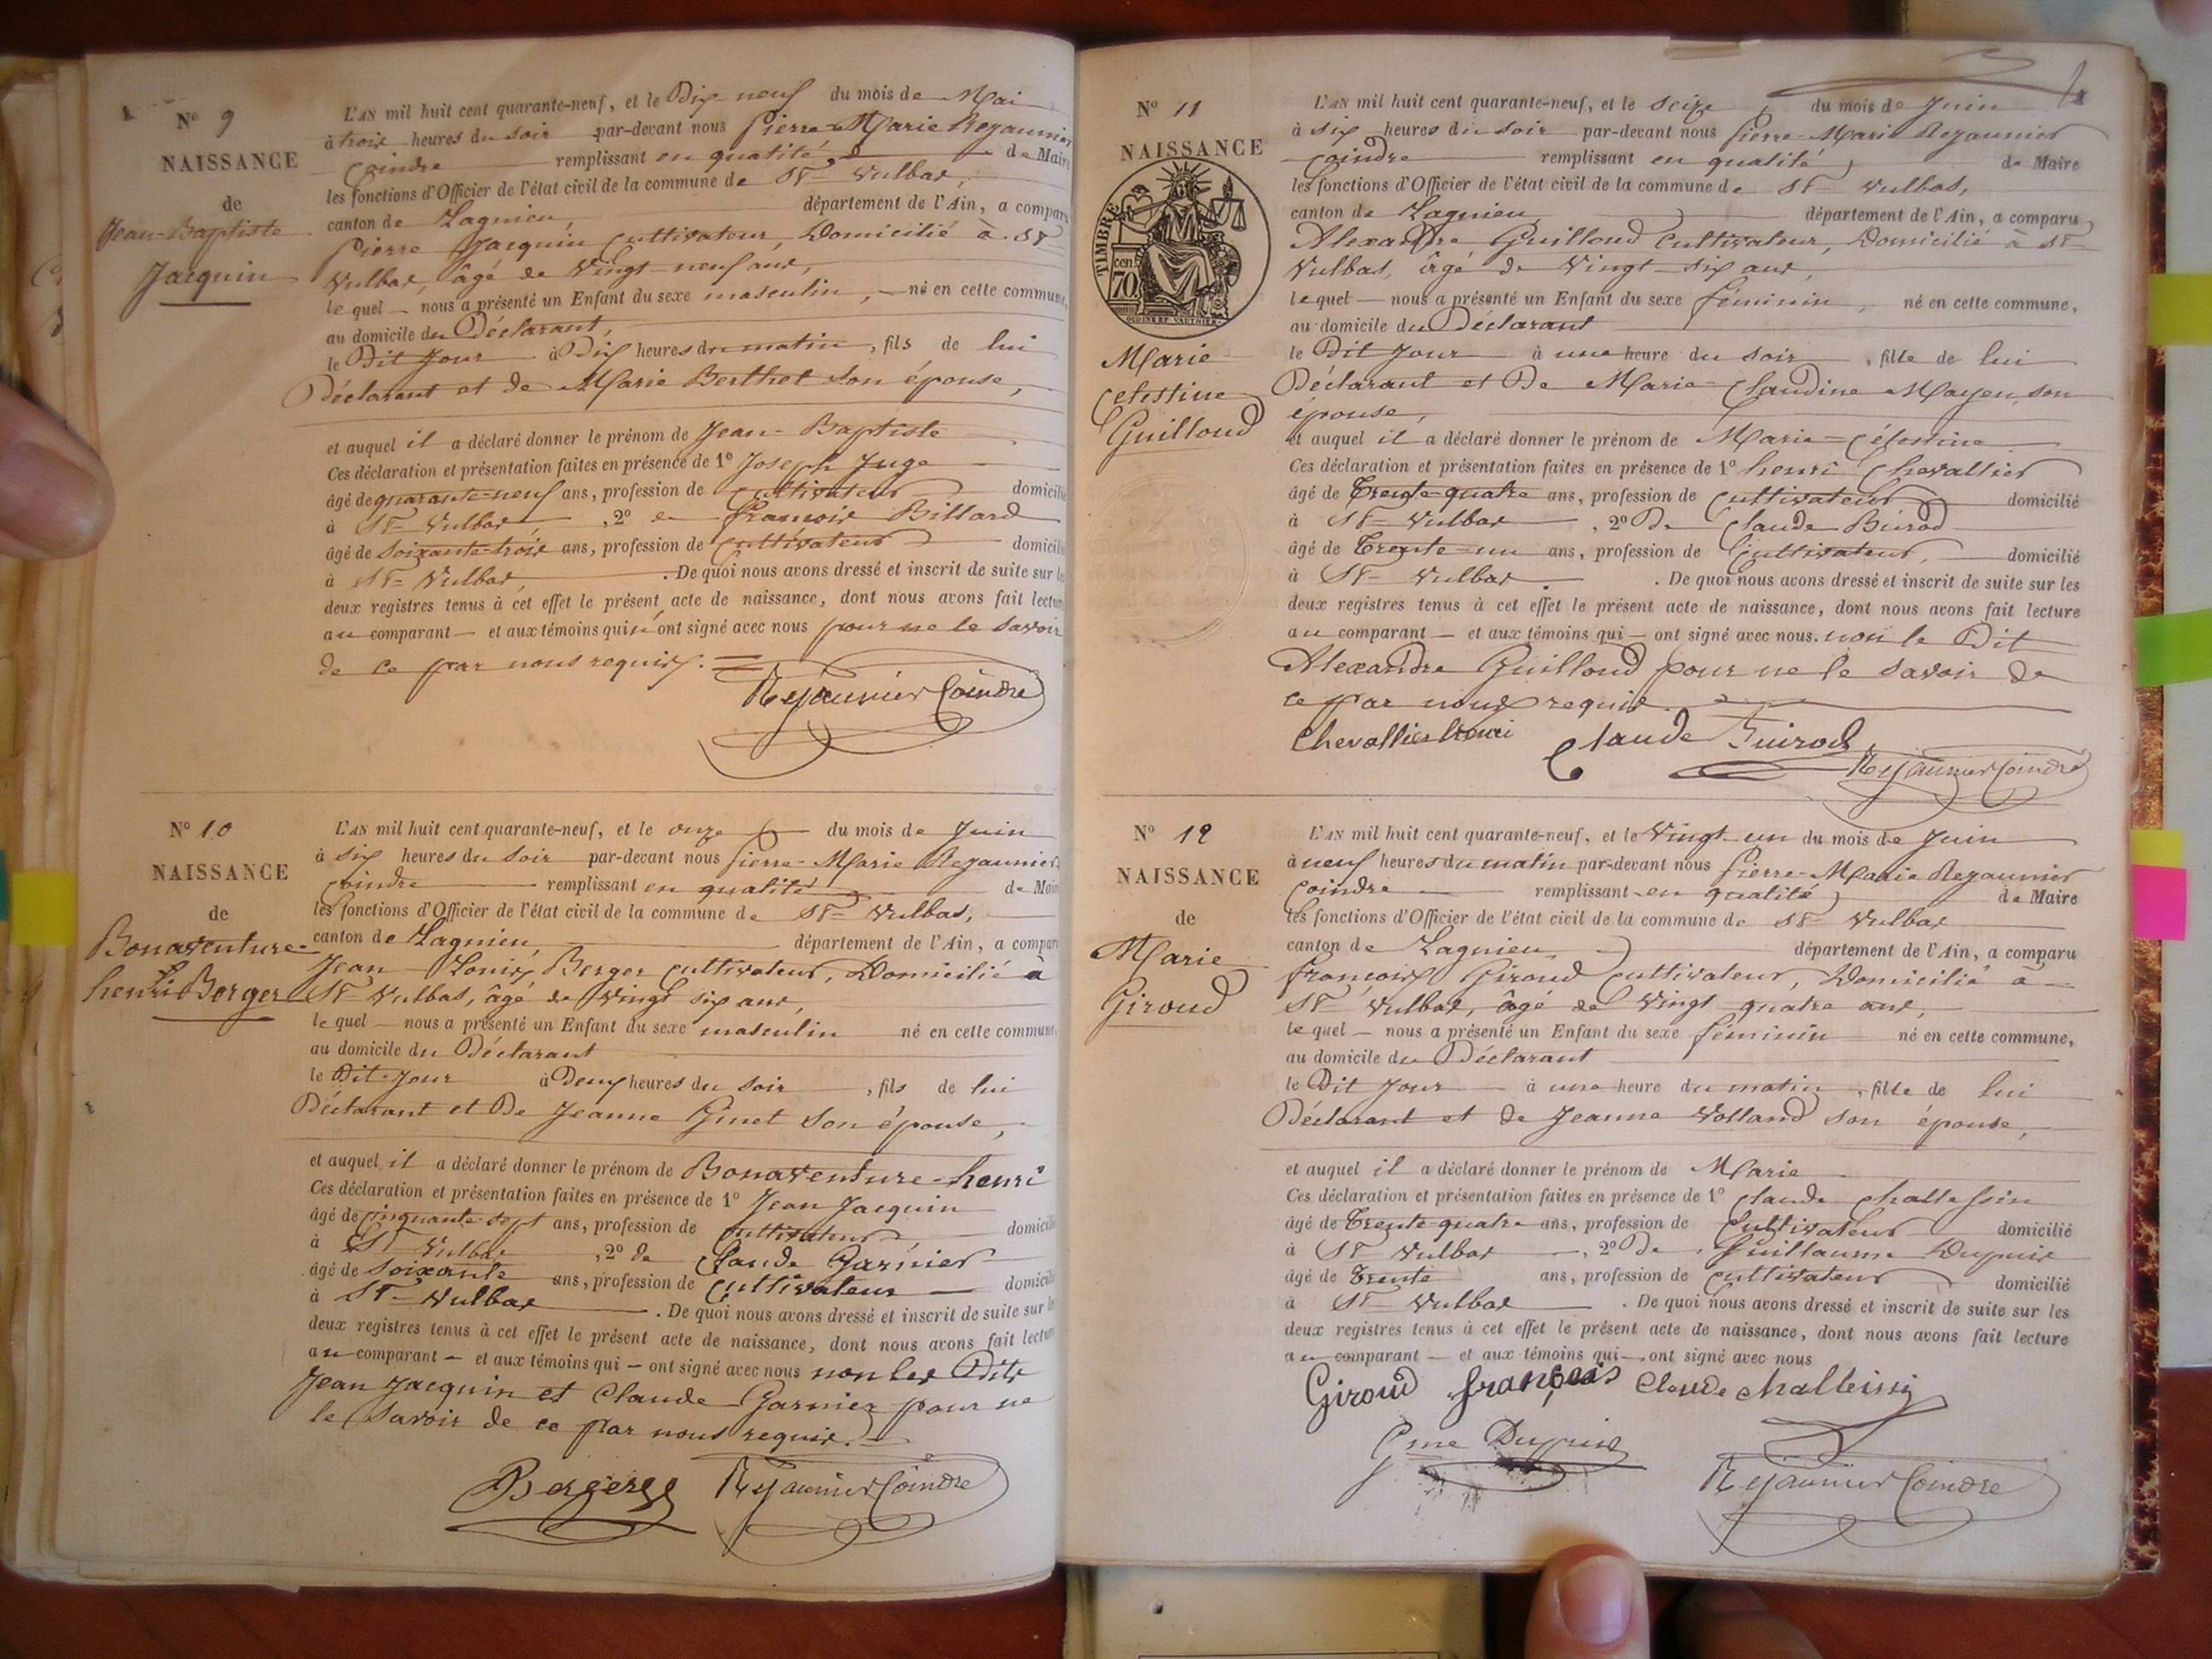 Nº 9
NAISSANCE
de
Jean-Baptiste
Jacquin
L'AN mil huit cent quarante-neuf, et le Dix-neuf du mois de Mai
à trois heures du soir par-devant nous Pierre-Marie Rejaunier
Coindre remplissant en qualité de Maire
les fonctions d'Officier de l'état civil de la commune de St Vulbas,
canton de Lagnieu, département de l'Ain, a comparu
Pierre Jacquin Cultivateur, Domicilié à St
Vulbas, âgé de Vingt-neuf ans,
lequel nous a présenté un Enfant du sexe masculin, né en cette commune,
au domicile du Déclarant,
le Dit Jour à Dix heures du matin, fils de lui
Déclarant et de Marie Berthet son épouse,
et auquel il a déclaré donner le prénom de Jean-Baptiste
Ces déclaration et présentation faites en présence de 1º Joseph Juge
âgé de quarante-neuf ans, profession de Cultivateur domicilié
à St Vulbas, 2º de françois Billard
âgé de soixante-trois ans, profession de Cultivateur domicilié
à St Vulbas, . De quoi nous avons dressé et inscrit de suite sur les
deux registres tenus à cet effet le présent acte de naissance, dont nous avons fait lecture
au comparant et aux témoins qui n'ont signé avec nous pour ne le savoir
de ce par nous requis.
Rejaunier Coindre
Nº 10
NAISSANCE
de
Bonaventure-
henri Berger
L'AN mil huit cent quarante-neuf, et le onze du mois de Juin
à six heures du soir par-devant nous Pierre-Marie Rejaunier
Coindre remplissant en qualité de Maire
les fonctions d'Officier de l'état civil de la commune de St Vulbas,
canton de Lagnieu, département de l'Ain, a comparu
Jean Louis Berger Cultivateur, Domicilié à
St Vulbas, âgé de Vingt six ans,
lequel nous a présenté un Enfant du sexe masculin né en cette commune,
au domicile du Déclarant
le Dit Jour à Deux heures du soir, fils de lui
Déclarant et De Jeanne Ginet son épouse,
et auquel il a déclaré donner le prénom de Bonaventure-henri
Ces déclaration et présentation faites en présence de 1º Jean Jacquin
âgé de Cinquante-sept ans, profession de Cultivateur, domicilié
à St Vulbas, 2º de Claude Garnier
âgé de soixante ans, profession de Cultivateur domicilié
à St Vulbas . De quoi nous avons dressé et inscrit de suite sur les
deux registres tenus à cet effet le présent acte de naissance, dont nous avons fait lecture
au comparant et aux témoins qui ont signé avec nous non les Dits
Jean Jacquin et Claude Garnier pour ne
le savoir de ce par nous requis.
Berger Rejaunier Coindre
Nº 11
NAISSANCE
TIMBRE
cen.
70.
Marie
Celestine
Guilloud
L'AN mil huit cent quarante-neuf, et le seize du mois de Juin
à six heures du soir par-devant nous Pierre-Marie Rejaunier
Coindre remplissant en qualité de Maire
les fonctions d'Officier de l'état civil de la commune de St Vulbas,
canton de Lagnieu, département de l'Ain, a comparu
Alexandre Guilloud Cultivateur, Domicilié à St
Vulbas, âgé de Vingt-six ans,
lequel nous a présenté un Enfant du sexe féminin, né en cette commune,
au domicile du Déclarant
le Dit Jour à une heure du soir, fille de lui
Déclarant et De Marie-Claudine Mayen, son
épouse,
et auquel il a déclaré donner le prénom de Marie-Célestine
Ces déclaration et présentation faites en présence de 1º henri Chevallier
âgé de Trente-quatre ans, profession de Cultivateur domicilié
à St Vulbas, 2º De Claude
âgé de Trente-un ans, profession de Cultivateur, domicilié
à St Vulbas . De quoi nous avons dressé et inscrit de suite sur les
deux registres tenus à cet effet le présent acte de naissance, dont nous avons fait lecture
au comparant et aux témoins qui ont signé avec nous. non le Dit
Alexandre Guilloud pour ne le savoir de
ce par nous requis.
Chevallier henri Claude
Rejaunier Coindre
Nº 12
NAISSANCE
de
Marie
Giroud
L'AN mil huit cent quarante-neuf, et le Vingt-un du mois de Juin
à neuf heures du matin par-devant nous Pierre-Marie Rejaunier
Coindre remplissant en qualité de Maire
les fonctions d'Officier de l'état civil de la commune de St Vulbas
canton de Lagnieu, département de l'Ain, a comparu
françois Giroud Cultivateur, Domicilié à
St Vulbas, âgé de Vingt-quatre ans,
lequel nous a présenté un Enfant du sexe féminin né en cette commune,
au domicile du Déclarant
le Dit Jour à une heure du matin, fille de lui
Déclarant et de Jeanne Volland son épouse,
et auquel il a déclaré donner le prénom de Marie
Ces déclaration et présentation faites en présence de 1º Claude
âgé de Trente-quatre ans, profession de Cultivateur domicilié
à St Vulbas, 2º De Guillaume Dupuis
âgé de Trente ans, profession de Cultivateur domicilié
à St Vulbas . De quoi nous avons dressé et inscrit de suite sur les
deux registres tenus à cet effet le présent acte de naissance, dont nous avons fait lecture
au comparant et aux témoins qui ont signé avec nous
Giroud françois Claude
Gme Dupuis
Rejaunier Coindre